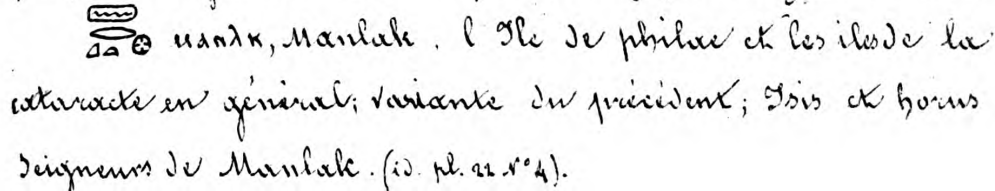 ⲙⲁⲛⲗⲕ, Manlak. l'Ile de philae et les iles de la
cataracte en général; variante du précédent; Isis et horus
Seigneurs de Manlak. (id. pl. 22 N° 4).